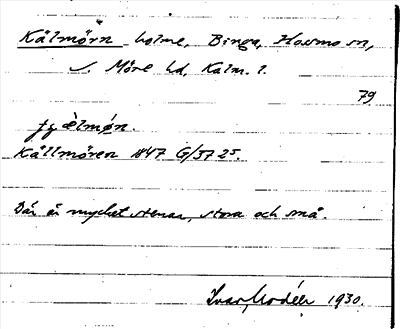 Kålmörn holme, Binga, Hossmo sn,
S. Möre hd, Kalm. l.
79
Källmören 1847 G/37 25.
Där är mycket stenar, stora och små.
Ivar Modéer 1930.